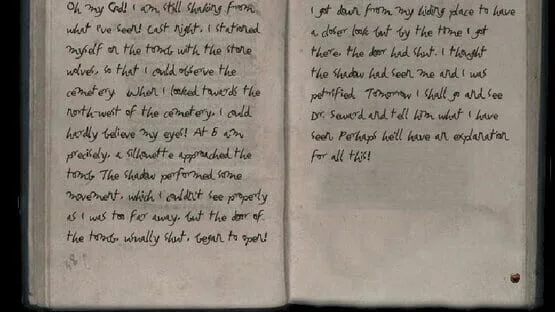 Oh my God! I am still shaking from
what I've seen! Last night, I stationed
myself on the tomb with the stone
wolves, so that I could observe the
cemetery. When I looked towards the
north-west of the cemetery, I could
hardly believe my eyes! At 5 am
precisely, a silhouette approached the
tomb. The shadow performed some
movement, which I couldn't see properly
as I was too far away, but the door of
the tomb, usually shut, began to open!
I got down from my hiding place to have
a closer look but by the time I got
there, the door had shut. I thought
the shadow had seen me and I was
petrified. Tomorrow I shall go and see
Dr. Seward and tell him what I have
seen. Perhaps he'll have an explanation
for all this!